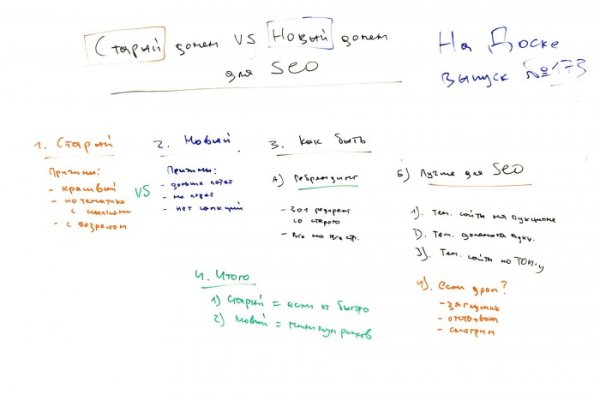 Старый домен VS Новый домен
для SEO
На Доске
выпуск №173
1. Старый
Причины:
- красивый
- по тематике
с ссылками
- с возрастом
VS
2. Новый
Причины:
- дольше
- нет санкций
3. Как быть
А) Ребрендинг
- 301 редирект
со старого
- Все на все стр.
Б) Лучше для SEO
1). Тем. сайты на аукционе
2). Тем. домена аукц.
3). Тем. сайты по ТОП-у
4). Если дроп?
- заглушка
- отстойник
- смотрим
4. Итого
1) Старый = если ок быстро
2) Новый = минимум рисков